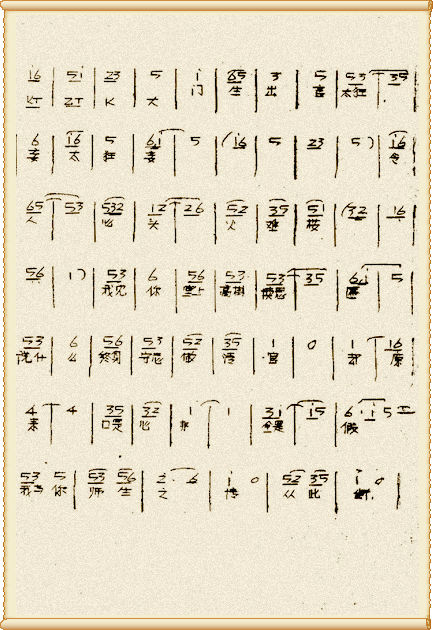 16 51 23 5 1 65 3 5 53 35
KT ZT K 大 门 生 出 言 太狂
6 16 5 61 5 (16 5 23 5) 16
妄 太 狂 妄 令
65 53 532 12 26 52 35 51 (32 16
人 心 头 火 难 按
56 1) 53 6 56 53 53 35 61 5
我见 你 堂上 高掛 模思 匾
53 6 56 53 52 35 1 0 1 16
说什 么 终身 守志 做 清 官 却 原
4 4 35 32 1 1 31 15 6 1 5
来 口是 心 非 全是 假
53 5 53 56 2 6 1 0 52 35 1 0
我与 你 师 生 之 情 从 此 断